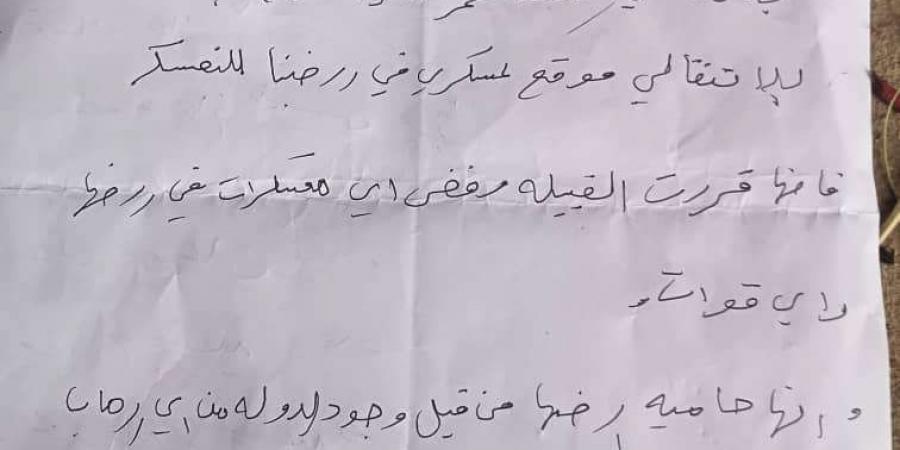 للاتنقالي موقع لمسكري في ررضنا للتعسكر
فانها قررت القبيله رفض اي معسكرات في ررضها
واي قوات
و إنها حاميه إرضها من قبل وجود الدوله من اي إرهاب